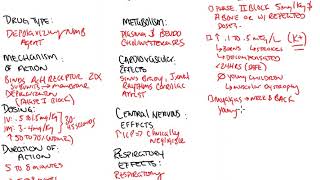 DRUG TYPE:
DEPOLARIZING NMB
AGENT
MECHANISM
OF ACTION
BINDS ACH RECEPTOR 2α
SUBUNITS → MEMBRANE
DEPOLARIZATION
(PHASE I BLOCK)
DOSING:
IV: .5 to 1.5mg/kg
IM: 3-4mg/kg
30-
SECONDS
DURATION OF
ACTION
5 TO 8 MINUTES
METABOLISM:
PLASMA &
CHOLINESTERASES
CARDIOVASCULAR
EFFECTS
SINUS BRADY, JUNCTIONAL
RHYTHMS
CARDIAC ARREST
CENTRAL NERVOUS
EFFECTS
↑ICP → CLINICALLY
NEGLIGIBLE
RESPIRATORY
EFFECTS:
RESPIRATORY
PHASE II BLOCK 5mg/kg &
ABOVE OR W/ REPEATED
DOSES
↑ .1 TO .5 mEq/L (K+)
→ BURNS →STROKES
↳ 24HRS
YOUNG CHILDREN
→ MUSCULAR DYSTROPHY
MYALGIAS → NECK & BACK
YOUNG